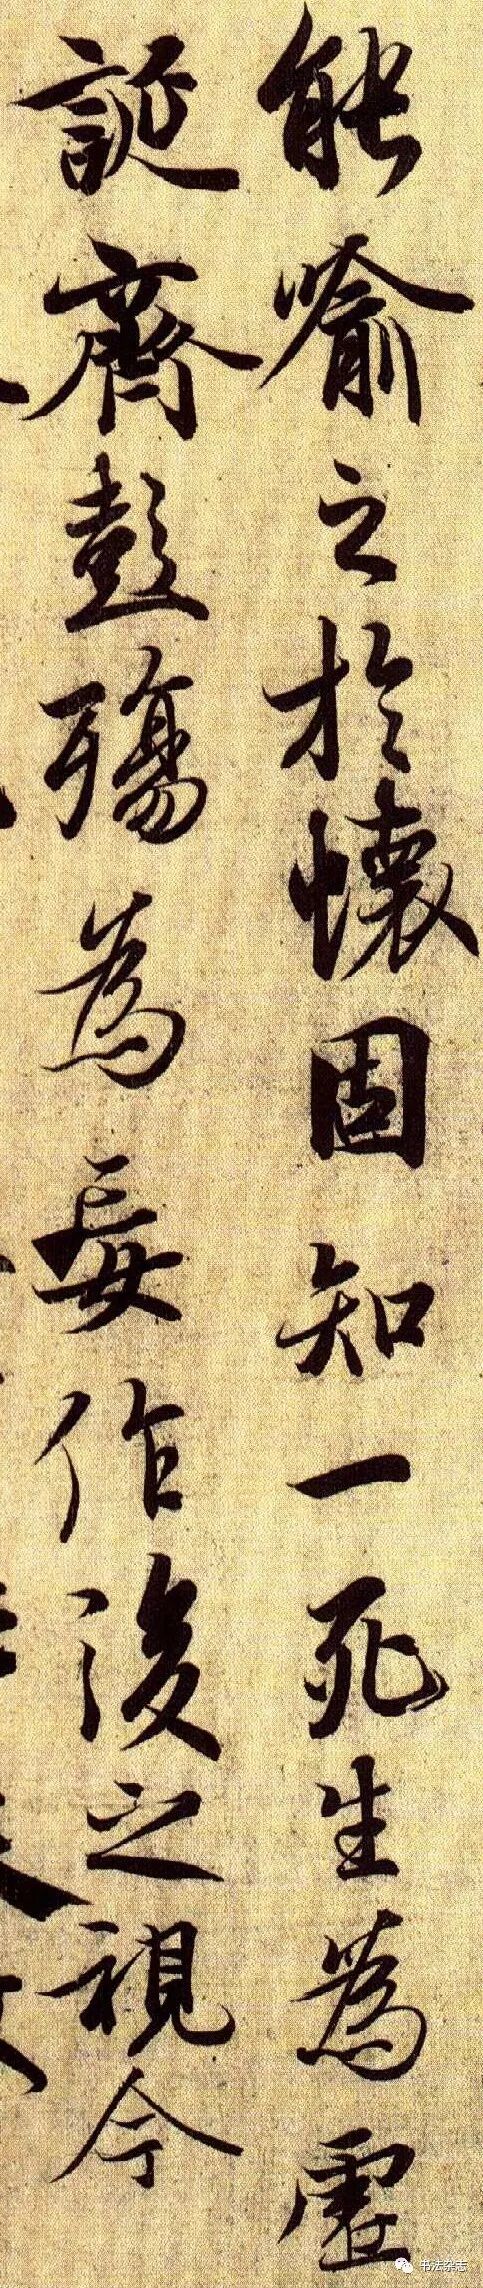 能喻之於懷固知一死生爲虛
誕齊彭殤爲妄作後之視今
书法杂志